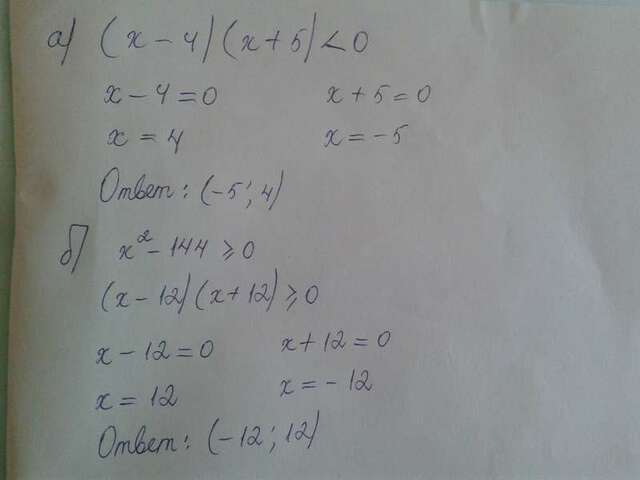 а) (x - 4)(x + 5) < 0
x - 4 = 0 x + 5 = 0
x = 4 x = -5
Ответ: (-5; 4)
б) x² - 144 ≥ 0
(x - 12)(x + 12) ≥ 0
x - 12 = 0 x + 12 = 0
x = 12 x = -12
Ответ: (-12; 12)